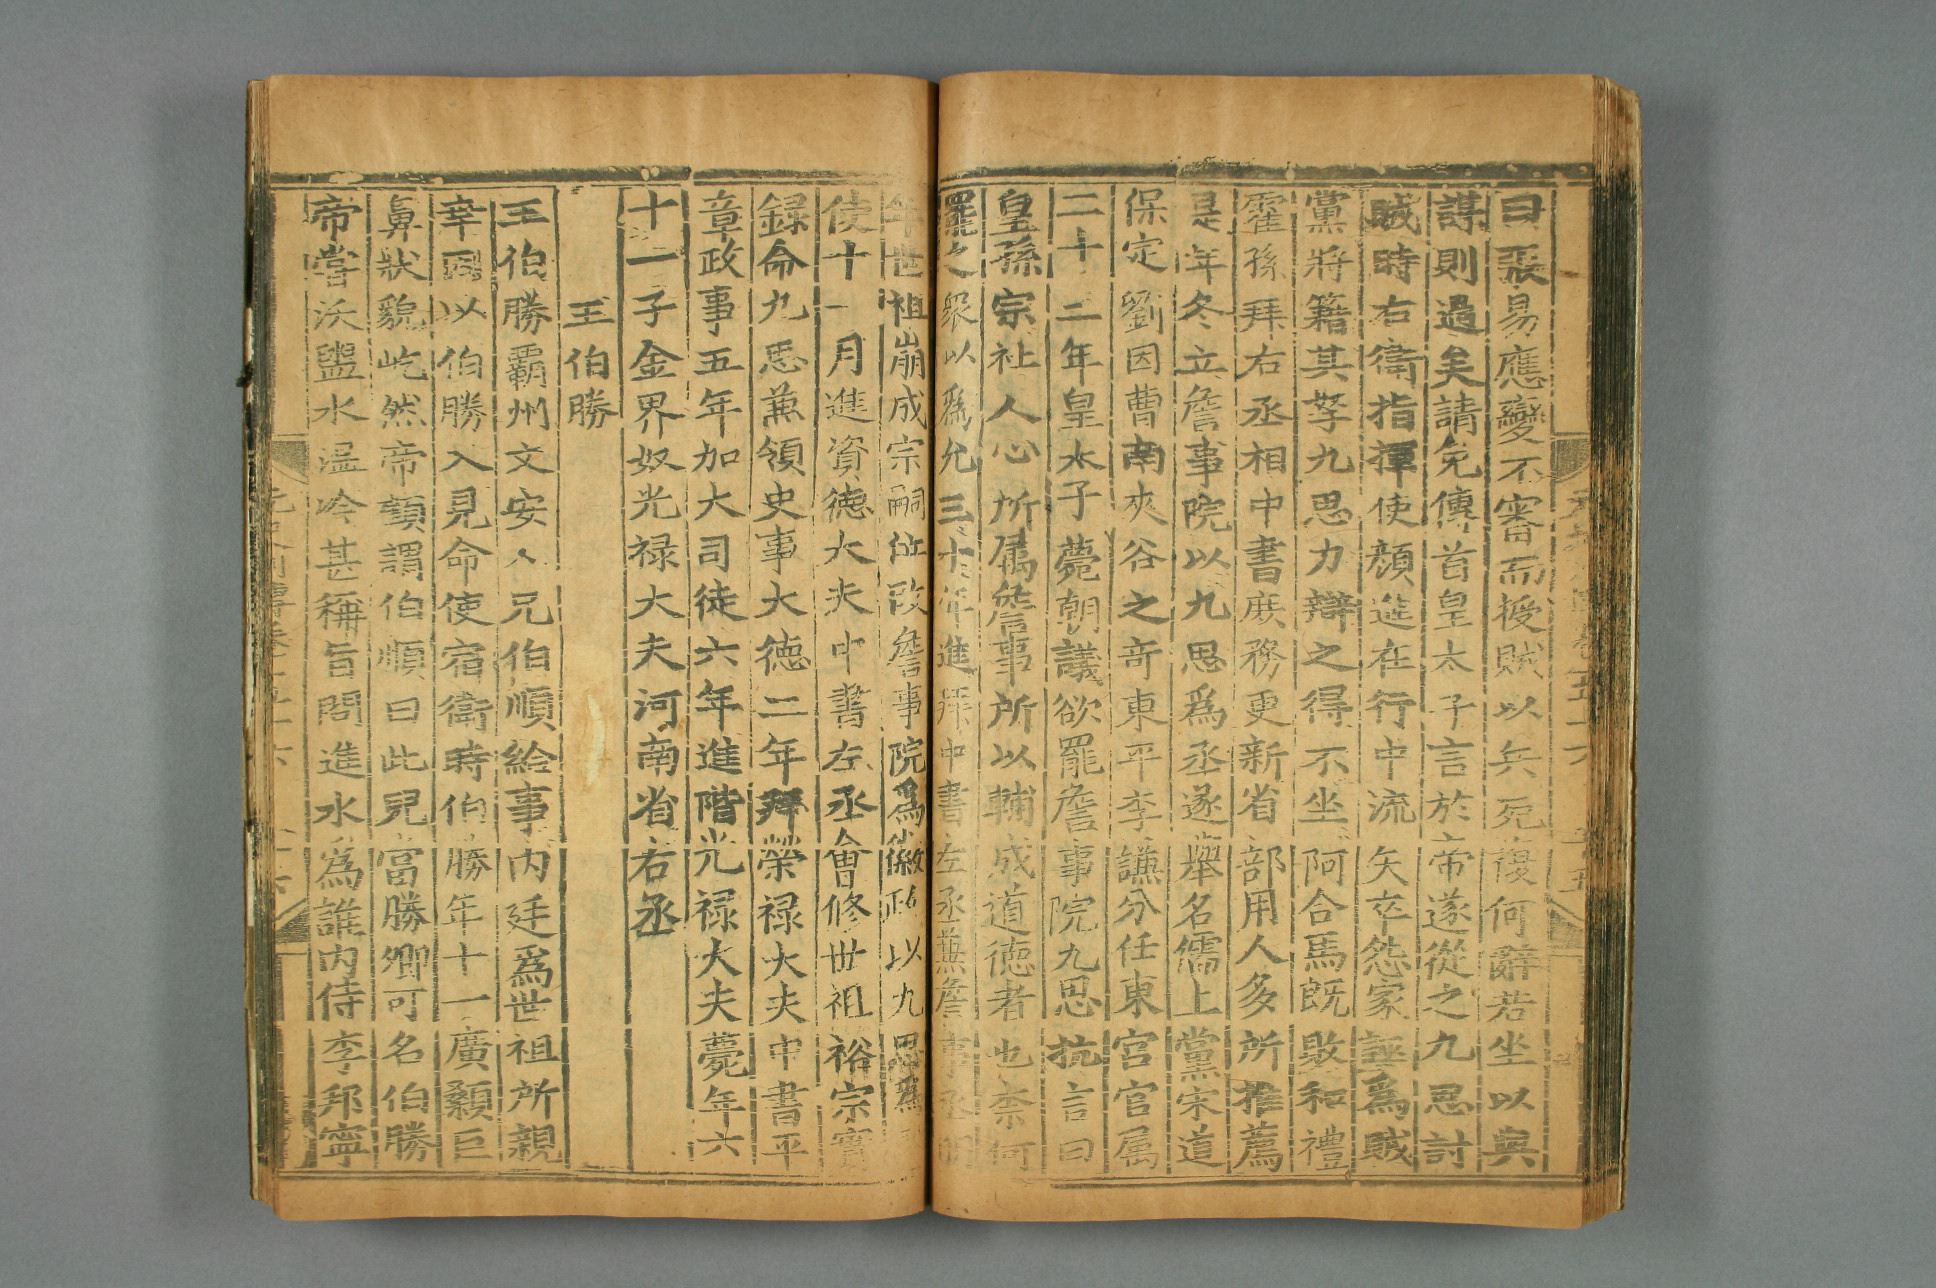 曰張易應變不審而授賊以兵死復何辭若坐以與
謀則過矣請免傳首皇太子言於帝遂從之九思討
賊時右衛指揮使顏進在行中流矢卒怨家誣為賊
黨將籍其孥九思力辯之得不坐阿合馬旣敗和禮
霍孫拜右丞相中書庶務更新省部用人多所推薦
是年冬立詹事院以九思爲丞遂舉名儒上黨宋道
保定劉因曹南夾谷之奇東平李謙分任東宮官属
二十二年皇太子薨朝議欲罷詹事院九思抗言曰
皇孫宗社人心所属詹事所以輔成道德者也柰何
罷之衆以爲允三十年進拜中書左丞兼詹事丞明
年世祖崩成宗嗣位改詹事院爲徽政以九思爲
使十一月進資德大夫中書左丞會修世祖裕宗實
録命九思兼領史事大德二年拜榮禄大夫中書平
章政事五年加大司徒六年進階光禄大夫薨年六
十一子金界奴光禄大夫河南省右丞
王伯勝
王伯勝霸州文安人兄伯順給事內廷爲世祖所親
幸因以伯勝入見命使宿衛時伯勝年十一廣顙巨
鼻狀貌屹然帝顧謂伯順曰此兒當勝卿可名伯勝
帝嘗沃盥水溫冷甚稱旨問進水為誰內侍李邦寧